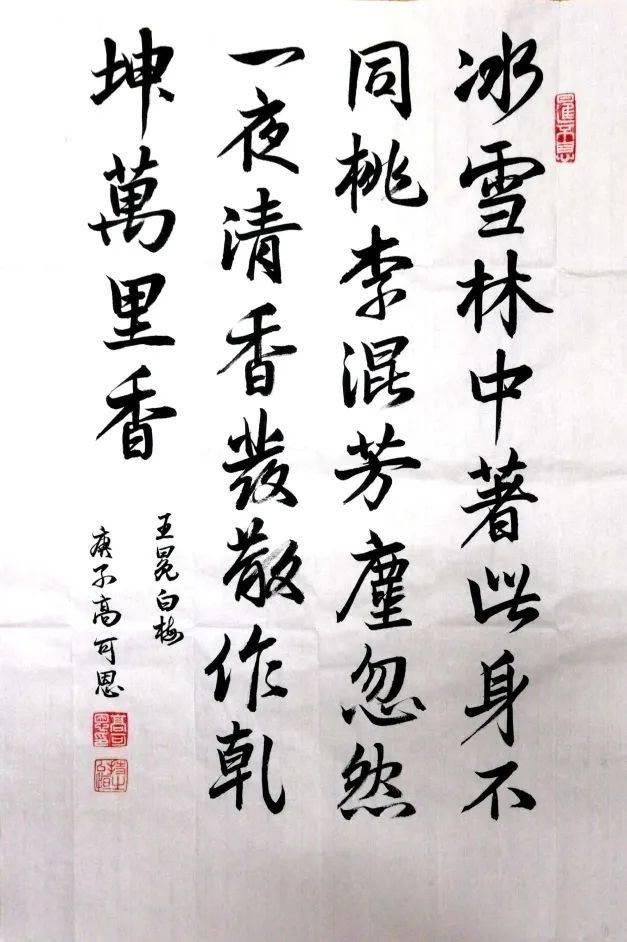 冰雪林中著此身不
同桃李混芳塵忽然
一夜清香發散作乹
坤萬里香
王冕白梅
庚子高可恩
高可恩印